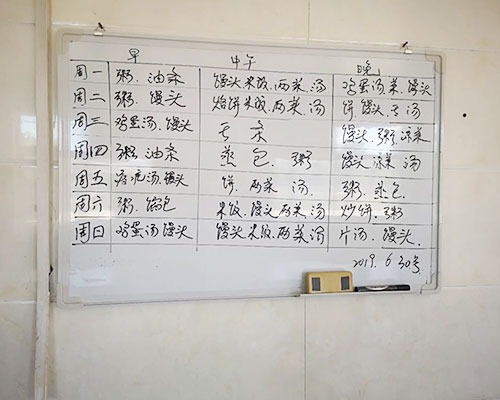 早 中午 晚
周一 粥、油条 馒头米饭、两菜汤 鸡蛋汤菜、馒头
周二 粥、馒头 焰饼米饭、两菜汤 饼、馒头、汤
周三 鸡蛋汤、馒头 条 馒头、粥、凉菜
周四 粥、油条 蒸包、粥 馒头凉菜 汤
周五 疙疸汤、馒头 饼、两菜 汤、 粥、蒸包
周六 粥、锅包 米饭、馒头两菜汤 炒饼、粥
周日 鸡蛋汤馒头 馒头米饭、两菜汤 片汤、馒头、
2019.6.30号